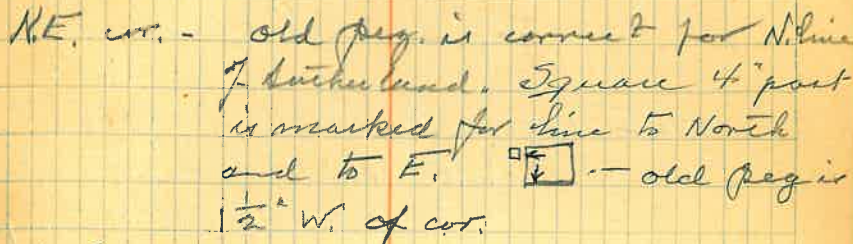 N.E. cor. - old peg. is correct for N. line
of Sutherland. Square 4" post
is marked for line to North
and to E. - old peg is
1 1/2" W. of cor.